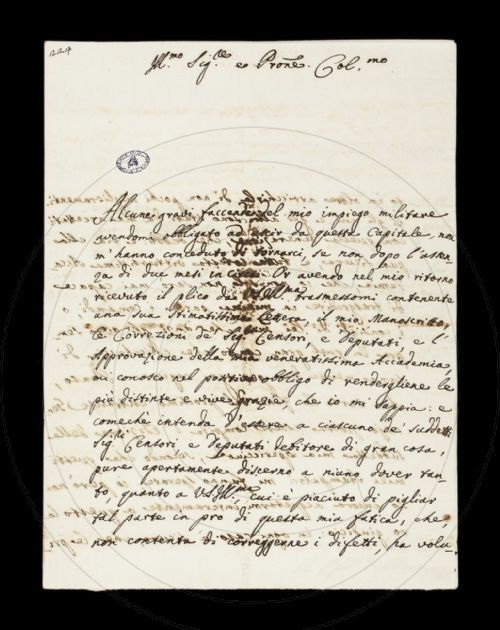 Ill.mo Sig.re e Prone. Col.mo
Alcune gravi faccende del mio impiego militare
avendomi obbligato ad uscir da questa Capitale, non
m'hanno conceduto di tornarci, se non dopo l'assen-
za di due mesi in circa. Or avendo nel mio ritorno
ricevuto il plico da VS.Ill.ma trasmessomi contenente
una sua stimatissima Lettera, il mio Manoscritto,
le Correzioni de' Sig.ri Censori, e Deputati, e l'
Approvazione della mia veneratissima Accademia,
mi conosco nel positivo obbligo di rendergliene le
più distinte e vive grazie che io mi sappia: e
comechè intenda d'essere a ciascuno de' suddetti
Sig.ri Censori, e Deputati debitore di gran cosa,
pure apertamente discerno a niuno dover tan-
to, quanto a VS.Ill.ma cui è piaciuto di pigliar
tal parte in pro di questa mia fatica, che
non contenta di correggerne i difetti, ha volu-